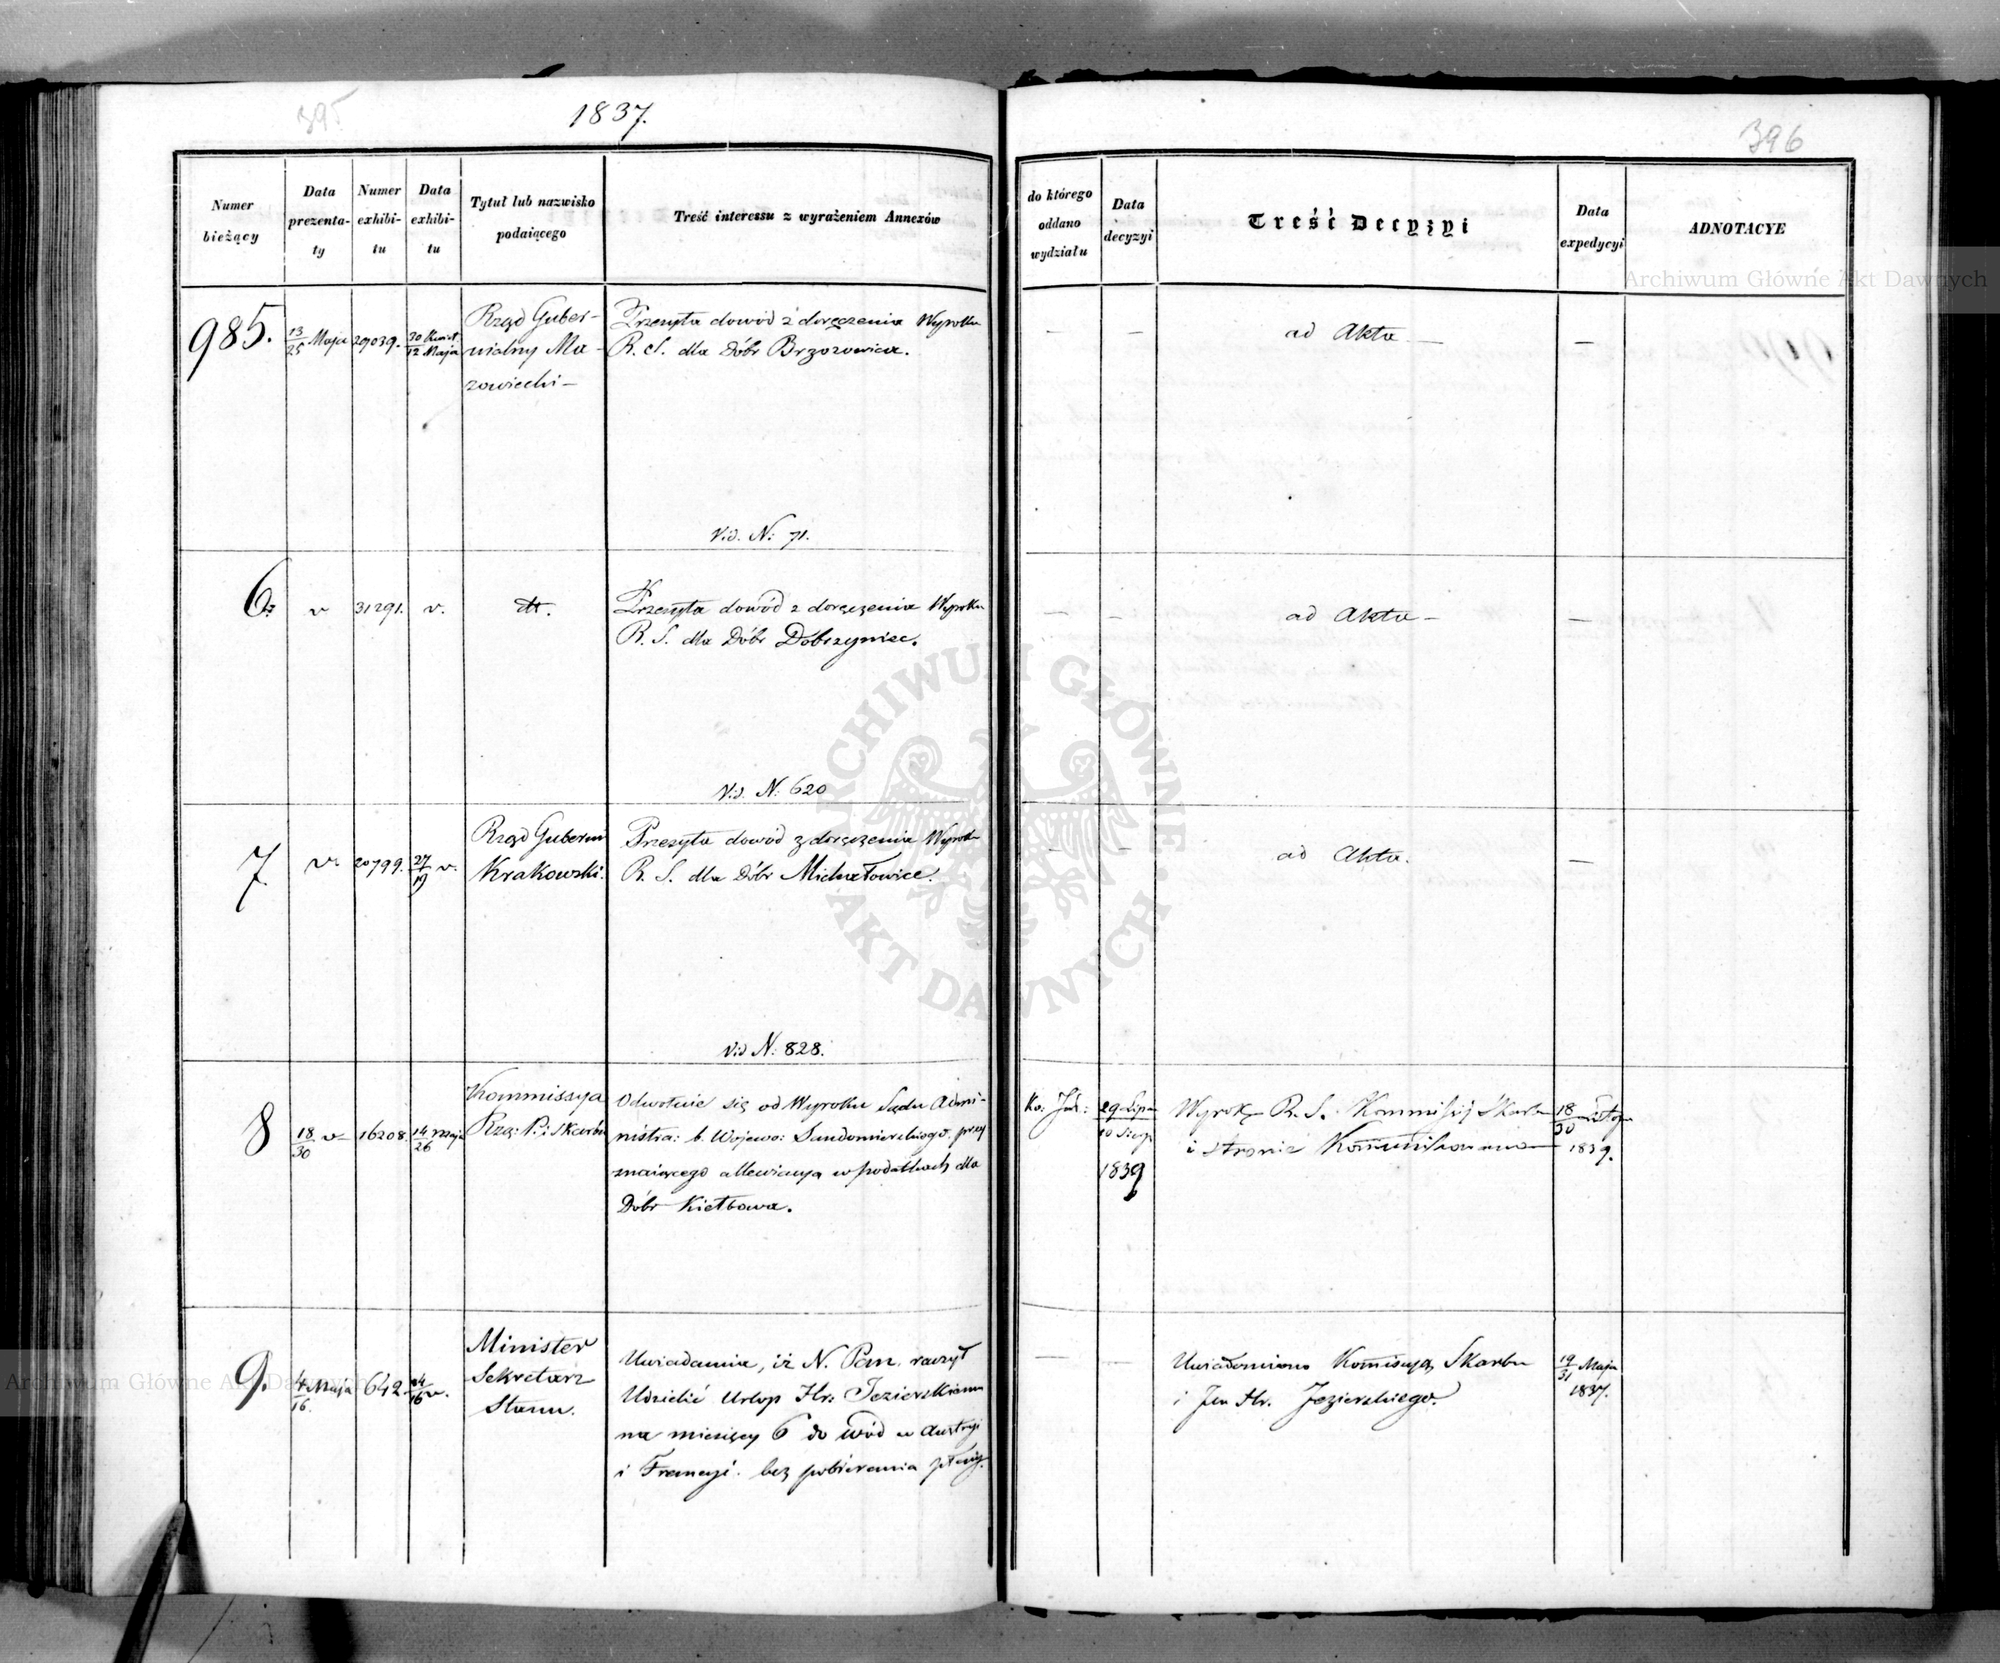 395
1837.
396
Numer bieżący
Data prezenta-ty
Numer exhibi-tu
Data exhibi-tu
Tytuł lub nazwisko podaiącego
Treść interessu z wyrażeniem Annexów
do którego oddano wydziału
Data decyzyi
Treść Decyzyi
Data expedycyi
ADNOTACYE
985.
13/25 Maja
29039.
30 Kwiet./12 Maja
Rząd Guber-
nialny Ma-
zowiecki —
Przesyła dowód z doręczenia Wyroku
R. S. dla Dóbr Brzozowica.
Vid. N: 71.
— — ad Akta — —
6.
v
31291.
v.
dt.
Przesyła dowód z doręczenia Wyroku
R. S. dla Dóbr Dobrzyniec.
Vid. N: 620
— — ad Akta — —
7.
v.
20799.
27/19 v.
Rząd Gubern
Krakowski.
Przesyła dowód z doręczenia Wyroku
R. S. dla Dóbr Michałowice.
Vid N: 828.
— — ad Akta. —
8
18/30 v
16208.
14/26 Maja
Kommissya
Rzą: P. i Skarbu
Odwołuie się od Wyroku Sądu Admi-
nistra: b. Wojewo: Sandomierskiego, przy
znaiącego allewiacyą w podatkach dla
Dóbr Kiełbowa.
29 Lipca/10 Sierp
1839
Wyrok R. S. Kommissyi Skarbu
i stronie Kommunikowano
18/30
1839.
9.
4/16. Maja
642
4/16 v.
Minister
Sekretarz
Stanu.
Uwiadamia, iż N. Pan raczył
Udzielić Urlop Hr: Jezierskiemu
na miesięcy 6 do wód w Austryi
i Francyi. bez pobierania płacy.
— —
Uwiadomiono Kommissyą Skarbu
i Hr. Jezierskiego.
19/31 Maja
1837.
Archiwum Główne Akt Dawnych
ARCHIWUM GŁÓWNE
AKT DAWNYCH
Archiwum Główne Akt Dawnych